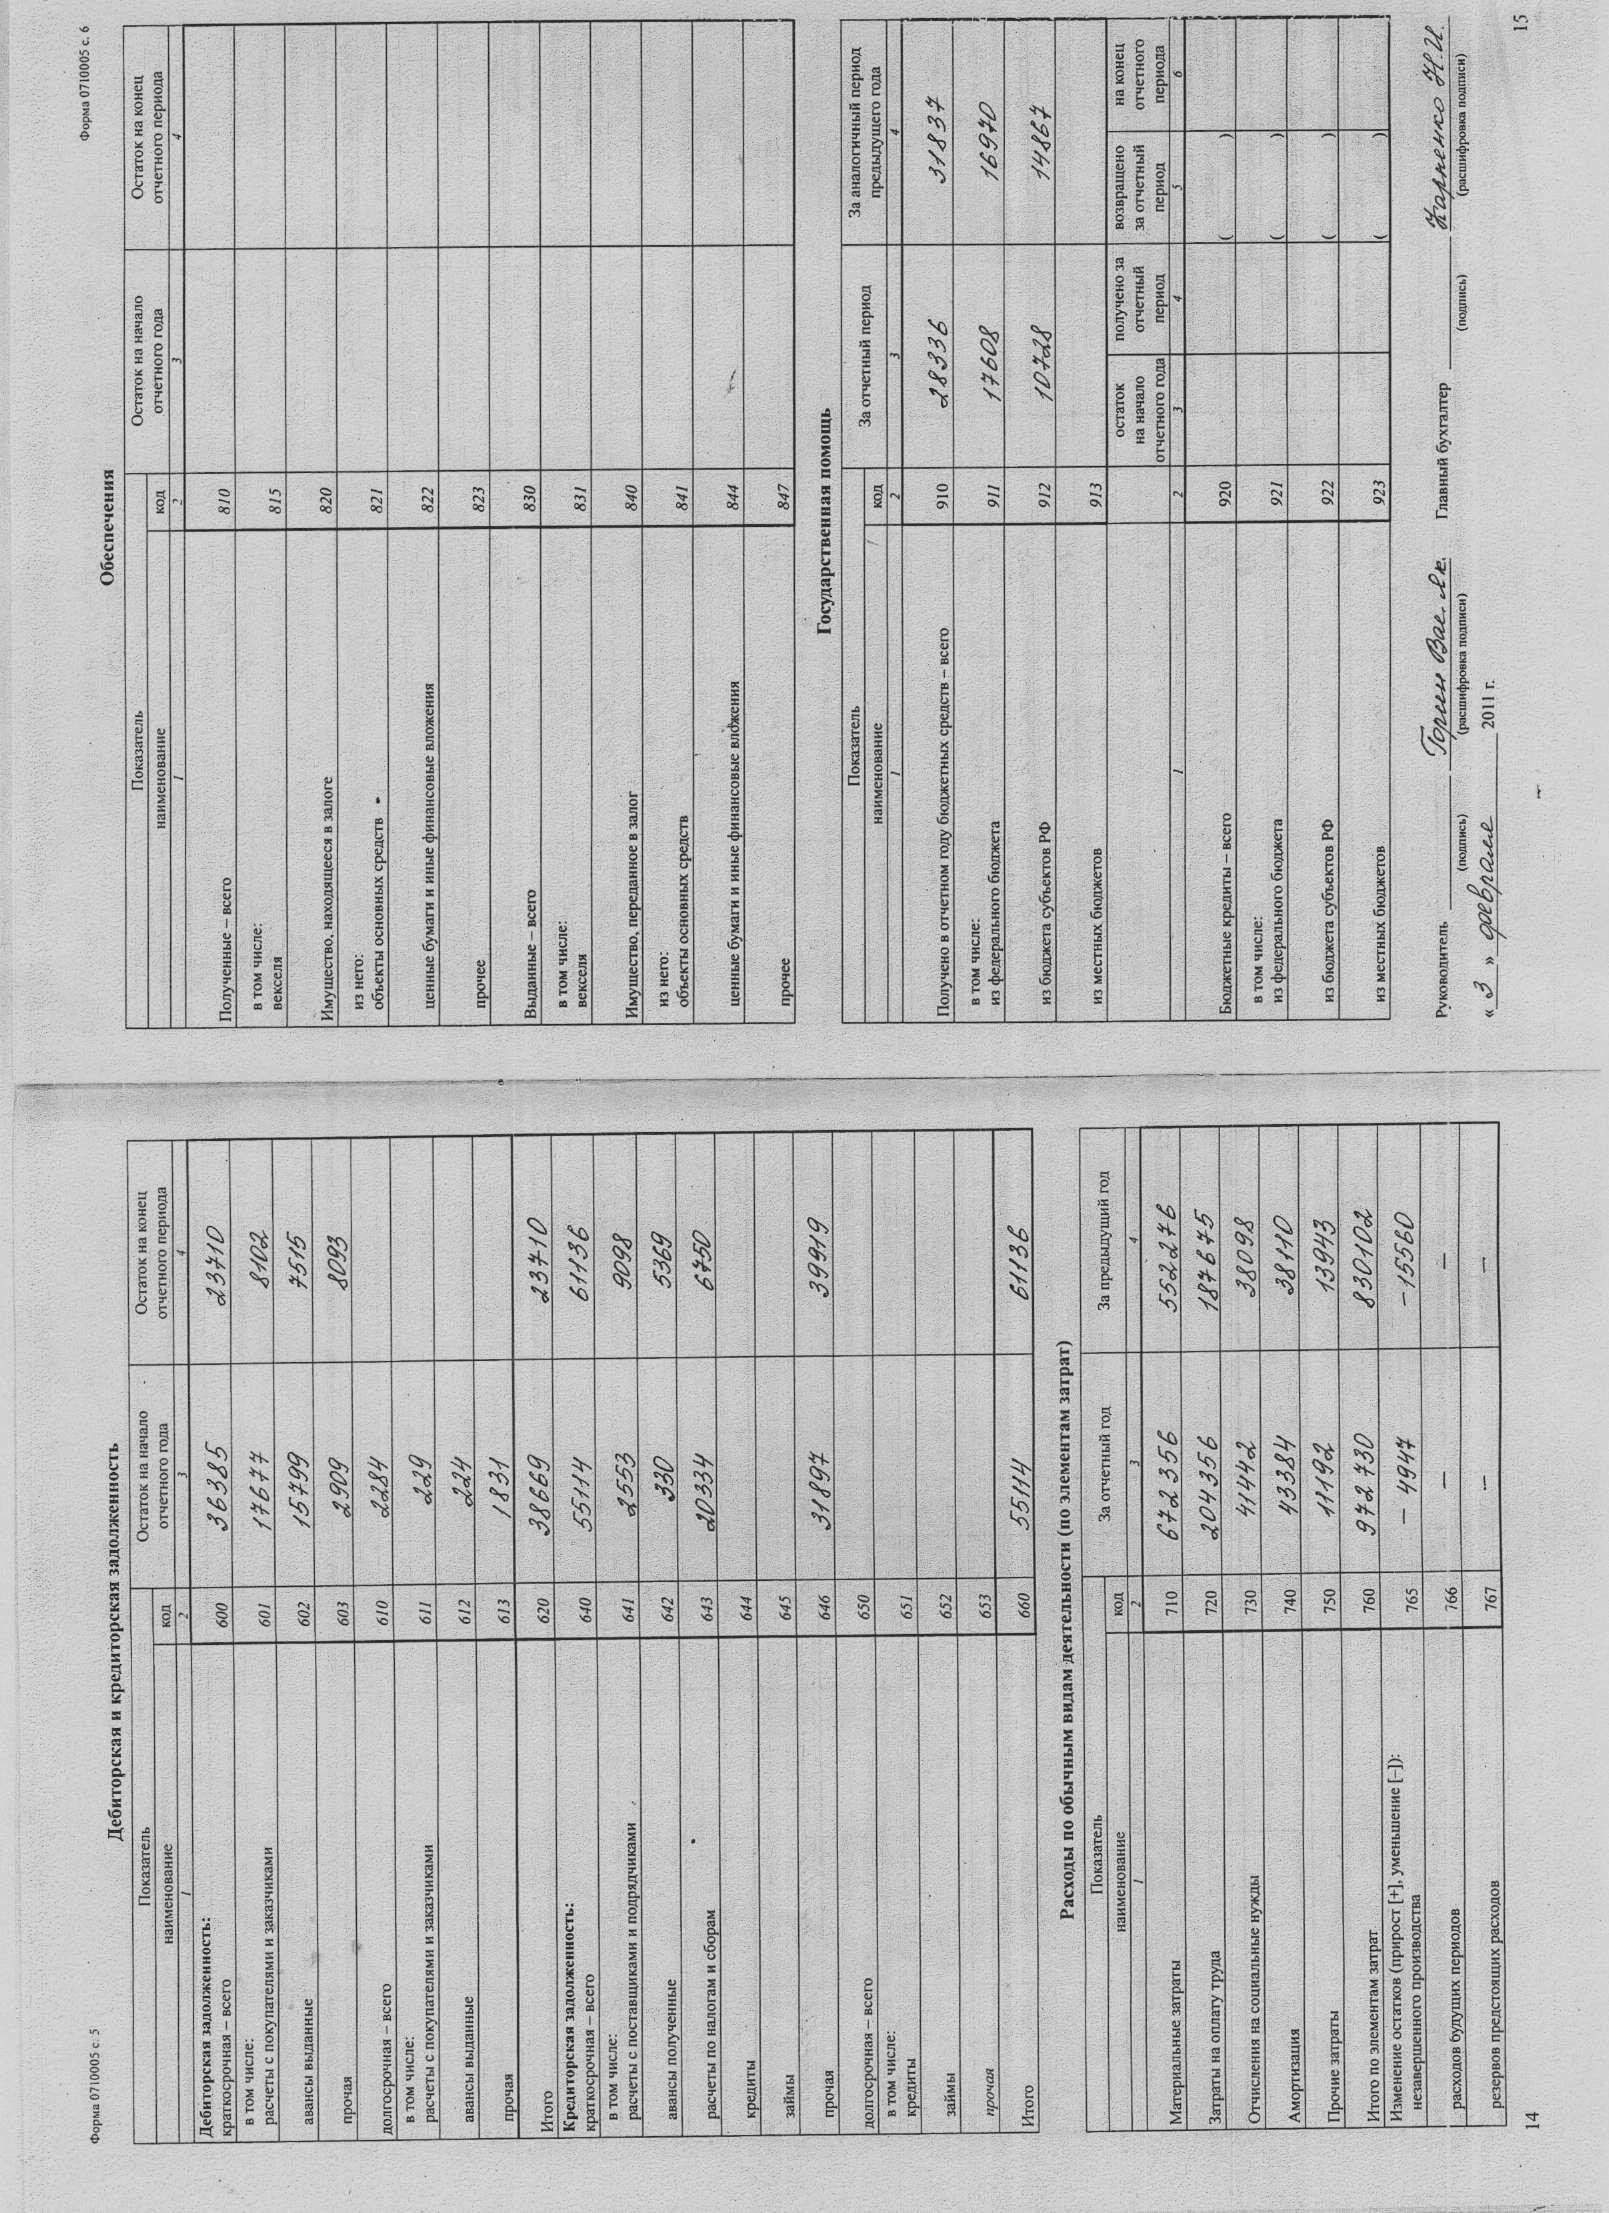 Форма 0710005 с. 5
Дебиторская и кредиторская задолженность
Показатель | Остаток на начало отчетного года | Остаток на конец отчетного периода
наименование | код
1 | 2 | 3 | 4
Дебиторская задолженность:
краткосрочная – всего | 600 | 36385 | 23710
в том числе:
расчеты с покупателями и заказчиками | 601 | 17677 | 8102
авансы выданные | 602 | 15799 | 7515
прочая | 603 | 2909 | 8093
долгосрочная – всего | 610 | 2284
в том числе:
расчеты с покупателями и заказчиками | 611 | 229
авансы выданные | 612 | 224
прочая | 613 | 1831
Итого | 620 | 38669 | 23710
Кредиторская задолженность:
краткосрочная – всего | 640 | 55114 | 61136
в том числе:
расчеты с поставщиками и подрядчиками | 641 | 2553 | 9098
авансы полученные | 642 | 330 | 5369
расчеты по налогам и сборам | 643 | 20334 | 6750
кредиты | 644
займы | 645
прочая | 646 | 31897 | 39919
долгосрочная – всего | 650
в том числе:
кредиты | 651
займы | 652
прочая | 653
Итого | 660 | 55114 | 61136
Расходы по обычным видам деятельности (по элементам затрат)
Показатель | За отчетный год | За предыдущий год
наименование | код
1 | 2 | 3 | 4
Материальные затраты | 710 | 672356 | 552276
Затраты на оплату труда | 720 | 204356 | 187675
Отчисления на социальные нужды | 730 | 41442 | 38098
Амортизация | 740 | 43384 | 38110
Прочие затраты | 750 | 11192 | 13943
Итого по элементам затрат | 760 | 972730 | 830102
Изменение остатков (прирост [+], уменьшение [–]):
незавершенного производства | 765 | – 4947 | –15560
расходов будущих периодов | 766 | – | –
резервов предстоящих расходов | 767 | – | –
14
Форма 0710005 с. 6
Обеспечения
Показатель | Остаток на начало отчетного года | Остаток на конец отчетного периода
наименование | код
1 | 2 | 3 | 4
Полученные – всего | 810
в том числе:
векселя | 815
Имущество, находящееся в залоге | 820
из него:
объекты основных средств | 821
ценные бумаги и иные финансовые вложения | 822
прочее | 823
Выданные – всего | 830
в том числе:
векселя | 831
Имущество, переданное в залог | 840
из него:
объекты основных средств | 841
ценные бумаги и иные финансовые вложения | 844
прочее | 847
Государственная помощь
Показатель | За отчетный период | За аналогичный период предыдущего года
наименование | код
1 | 2 | 3 | 4
Получено в отчетном году бюджетных средств – всего | 910 | 28336 | 31837
в том числе:
из федерального бюджета | 911 | 17608 | 16970
из бюджета субъектов РФ | 912 | 10728 | 14867
из местных бюджетов | 913
остаток на начало отчетного года | получено за отчетный период | возвращено за отчетный период | на конец отчетного периода
1 | 2 | 3 | 4 | 5 | 6
Бюджетные кредиты – всего | 920 | ( )
в том числе:
из федерального бюджета | 921 | ( )
из бюджета субъектов РФ | 922 | ( )
из местных бюджетов | 923 | ( )
Руководитель Горин Вас. Як. Главный бухгалтер Карпенко Н.И.
(подпись) (расшифровка подписи) (подпись) (расшифровка подписи)
« 3 » февраля 2011 г.
15